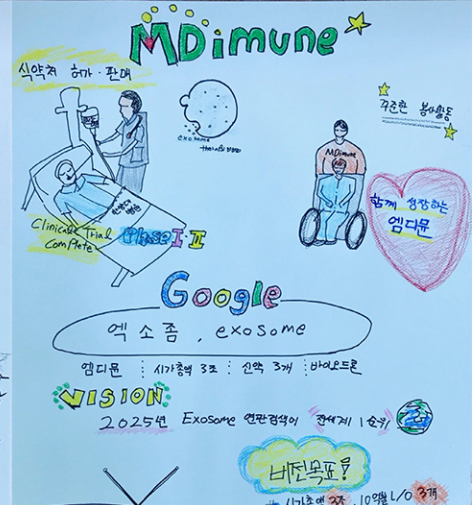 MDimune
식약처 허가·판매
꾸준한 봉사활동
exosome
therapeutics
MDimune
함께 성장하는
엠디뮨
Clinical Trial
Complete
Phase I·II
Google
엑소좀, exosome
엠디뮨 : 시가총액 3조 : 신약 3개 : 바이오드론
VISION
2025년 Exosome 연관검색어 전세계 1순위
비전목표!
시가총액 3조, 10억불 L/O 3개